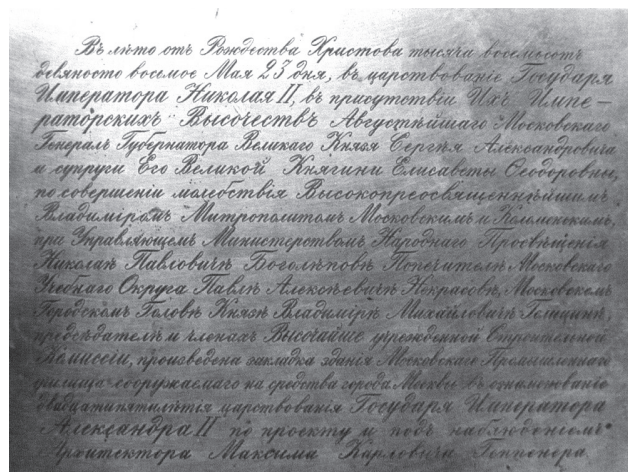 Въ лѣто отъ Рождества Христова тысяча восемьсотъ
девяносто восьмое Мая 23 дня, въ царствованіе Государя
Императора Николая II, въ присутствіи Ихъ Импе–
раторскихъ Высочествъ Августѣйшаго Московскаго
Генералъ Губернатора Великаго Князя Сергѣя Александровича
и супруги Его Великой Княгини Елисаветы Ѳеодоровны,
по совершеніи молебствія Высокопреосвященнѣйшимъ
Владиміромъ Митрополитомъ Московскимъ и Коломенскимъ,
при Управляющемъ Министерствомъ Народнаго Просвѣщенія
Николаѣ Павловичѣ Боголѣповѣ Попечителѣ Московскаго
Учебнаго Округа Павлѣ Алексѣевичѣ Некрасовѣ, Московскомъ
Городскомъ Головѣ Князѣ Владимірѣ Михайловичѣ Голицинѣ,
предсѣдателѣ и членахъ Высочайше учрежденной Строительной
Коммисіи, произведена закладка зданія Московскаго Промышленнаго
училища сооружаемаго на средства города Москвы въ ознаменованіе
двадцатипятилѣтія царствованія Государя Императора
Александра II по проекту и подъ наблюденіемъ
Архитектора Максима Карловича Геппенера.